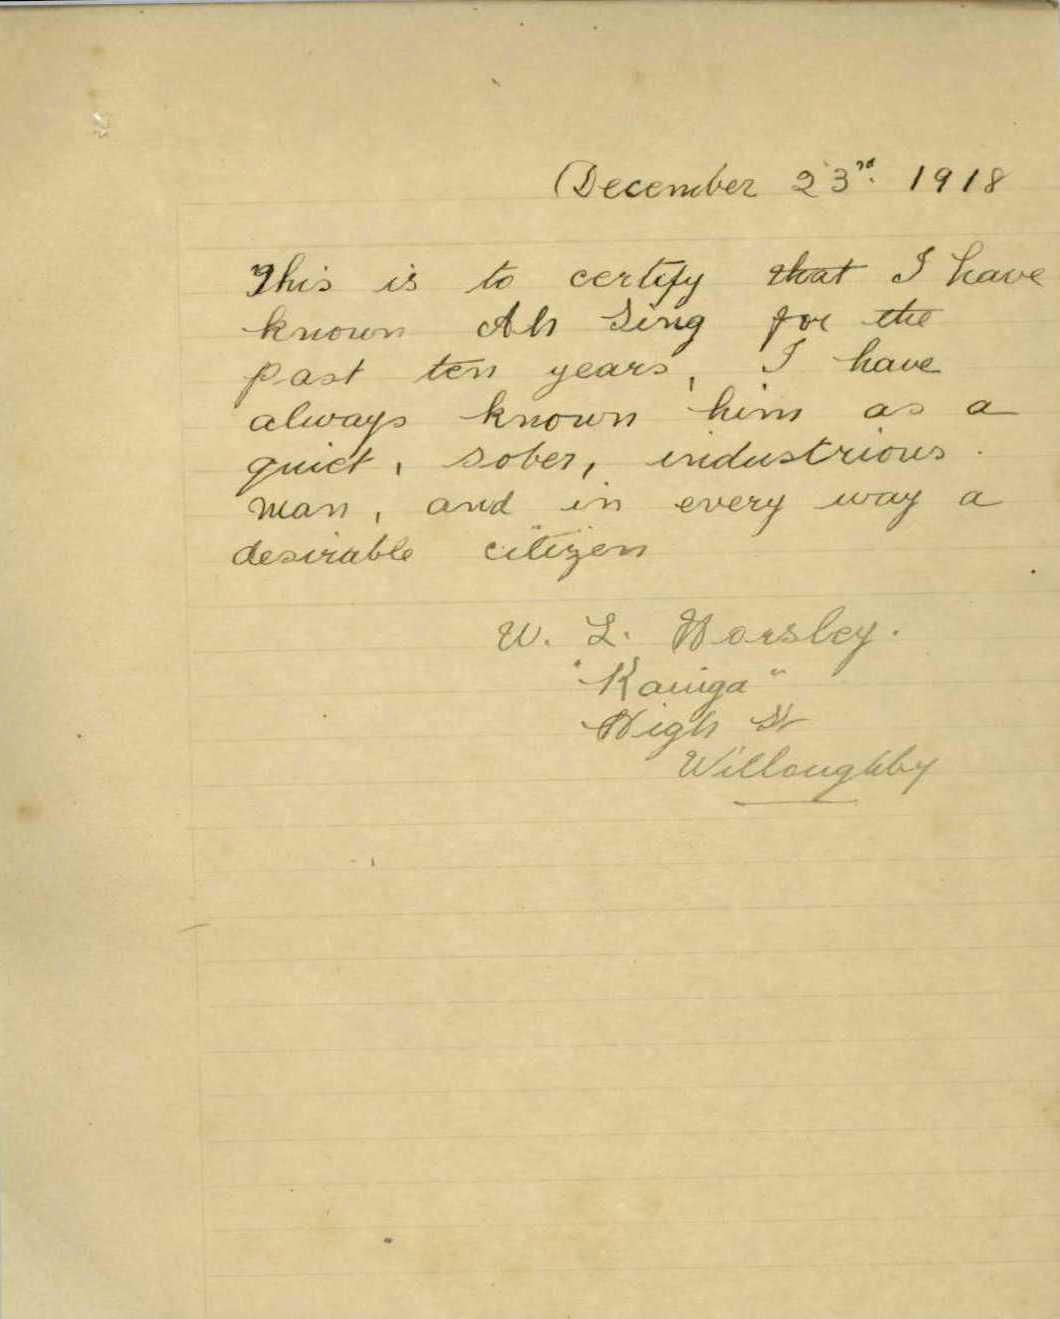 December 23rd. 1918
This is to certify that I have
known Ah Sing for the
past ten years, I have
always known him as a
quiet, sober, industrious
man, and in every way a
desirable citizen
W. L. Horsley.
"Kainga"
High St
Willoughby